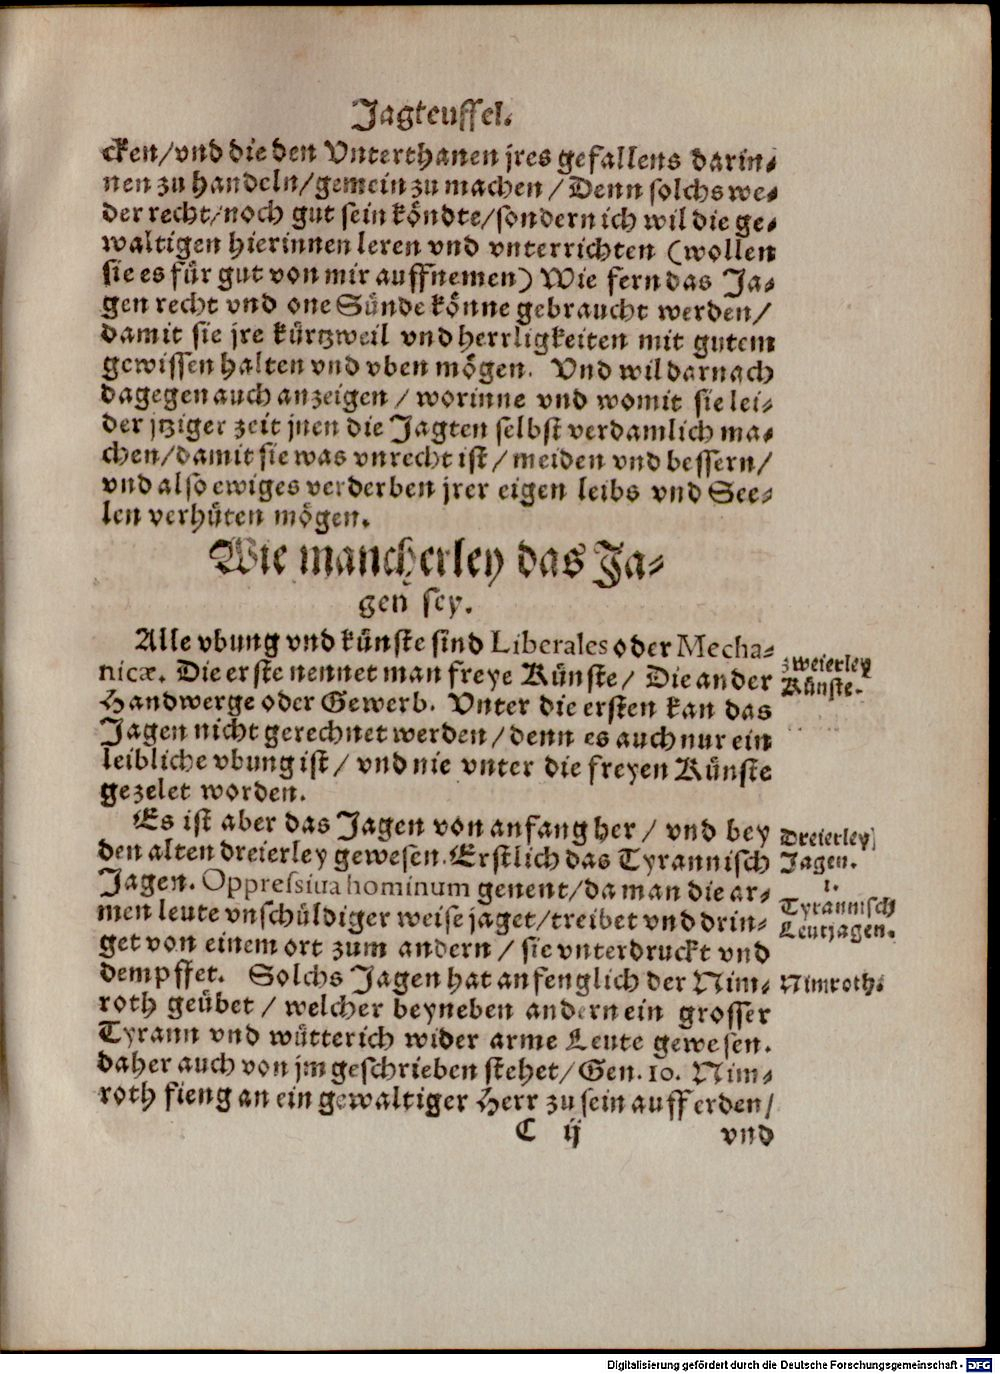 Jagteuffel.
cken/vnd die den Vnterthanen jres gefallens darin-
nen zu handeln/gemein zu machen/Denn solchs we-
der recht/noch gut sein köndte/sondern ich wil die ge-
waltigen hierinnen leren vnd vnterrichten (wollen
sie es für gut von mir auffnemen) Wie fern das Ja-
gen recht vnd one Sünde könne gebraucht werden/
damit sie jre kürtzweil vnd herrligkeiten mit gutem
gewissen halten vnd vben mögen. Vnd wil darnach
dagegen auch anzeigen/worinne vnd womit sie lei-
der jtziger zeit jnen die Jagten selbst verdamlich ma-
chen/damit sie was vnrecht ist/meiden vnd bessern/
vnd also ewiges verderben jrer eigen leibs vnd See-
len verhüten mögen.
Wie mancherley das Ja-
gen sey.
Alle vbung vnd künste sind Liberales oder Mecha-
nicæ. Die erste nennet man freye Künste/ Die ander
Handwerge oder Gewerb. Vnter die ersten kan das
Jagen nicht gerechnet werden/denn es auch nur ein
leibliche vbung ist/vnd nie vnter die freyen Künste
gezelet worden.
zweierley
Künste.
Es ist aber das Jagen von anfang her/vnd bey
den alten dreierley gewesen. Erstlich das Tyrannisch
Jagen. Oppressiua hominum genent/da man die ar-
men leute vnschüldiger weise jaget/treibet vnd drin-
get von einem ort zum andern/sie vnterdruckt vnd
dempffet. Solchs Jagen hat anfenglich der Nim-
roth geübet/welcher beyneben andern ein grosser
Tyrann vnd wütterich wider arme Leute gewesen.
daher auch von jm geschrieben stehet/Gen. 10. Nim-
roth fieng an ein gewaltiger Herr zu sein auff erden/
Dreierley
Jagen.
1.
Tyrannisch
Leutjagen.
Nimroth.
C ij
vnd
Digitalisierung gefördert durch die Deutsche Forschungsgemeinschaft - DFG